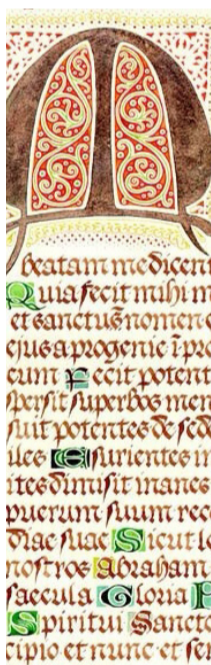 M
beatam me dicent
Quia fecit mihi m
et sanctus nomen e
ejus a progenie i pro
eum Fecit potent
spersit superbos men
suit potentes de sed
iles Esurientes im
ites dimisit inanes
puerum suum rec
diae suae Sicut lo
nostros Abraham
saecula Gloria P
Spiritui Sancto
cipio et nunc et sem